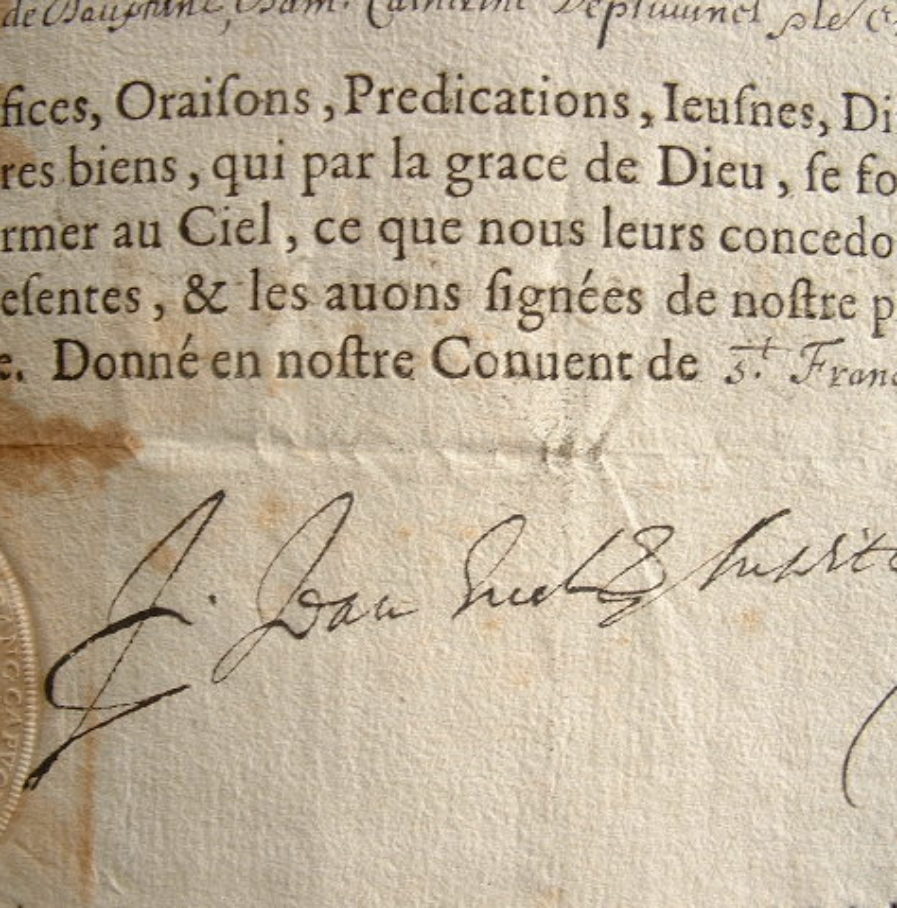 de Dauphiné, Dam. Catherine
fices, Oraiſons, Predications, Ieuſnes, Di
res biens, qui par la grace de Dieu, ſe fo
rmer au Ciel, ce que nous leurs concedo
eſentes, & les auons ſignées de noſtre p
e. Donné en noſtre Conuent de S.t Franc